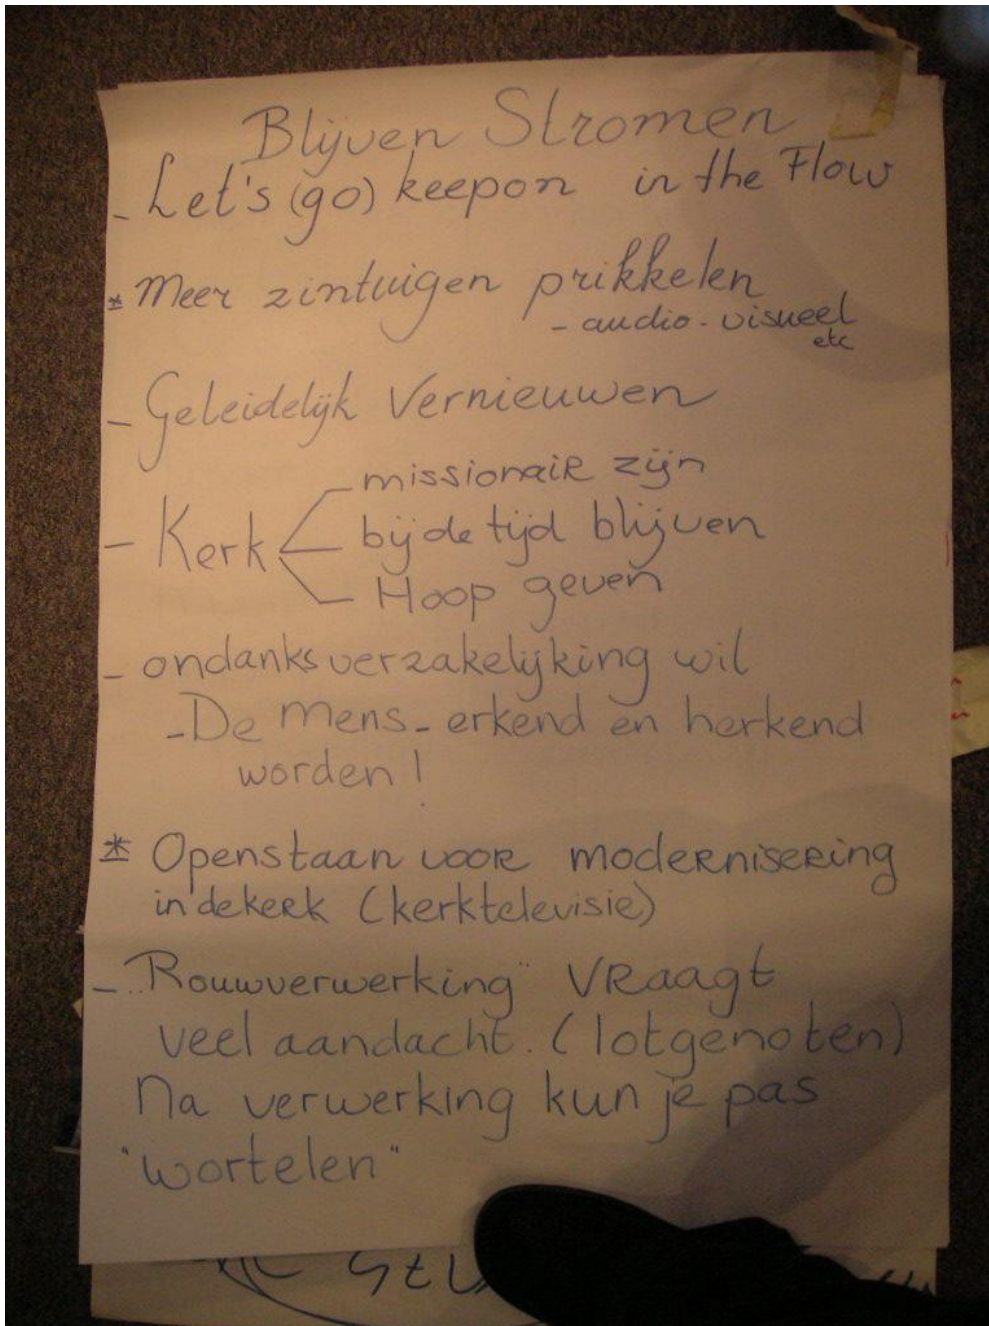 Blijven Stromen
- Let's (go) keep on in the Flow
* Meer zintuigen prikkelen
- audio-visueel
etc
- Geleidelijk Vernieuwen
missionair zijn
- Kerk bij de tijd blijven
Hoop geven
- ondanks verzakelijking wil
- De Mens - erkend en herkend
worden!
* Openstaan voor modernisering
in de kerk (kerktelevisie)
- "Rouwverwerking" vraagt
veel aandacht. (lotgenoten)
Na verwerking kun je pas
"wortelen"